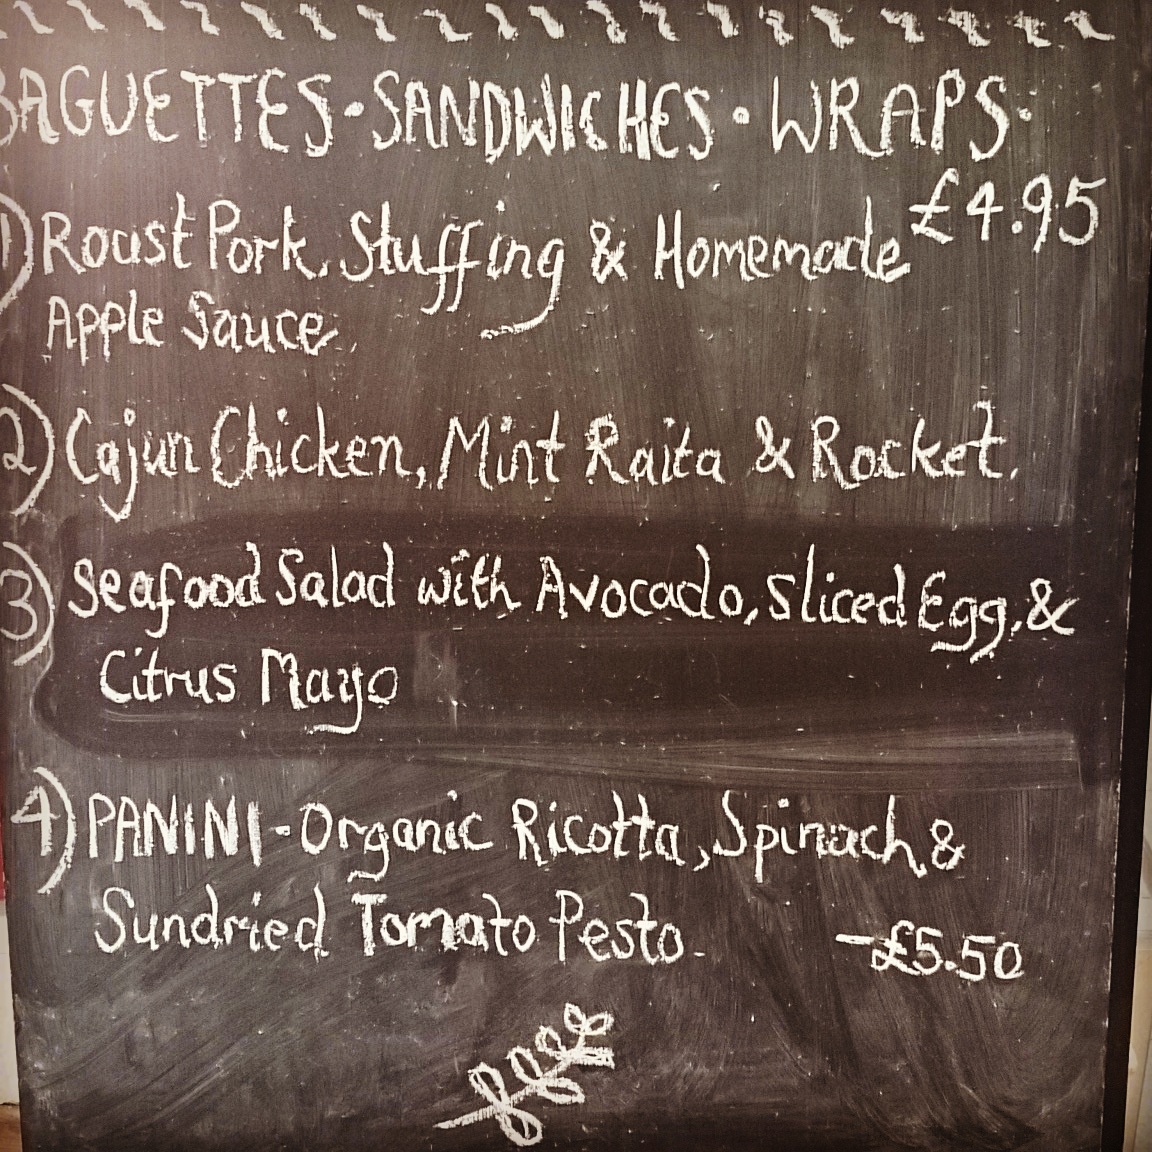 BAGUETTES · SANDWICHES · WRAPS ·
£4.95
1) Roast Pork, Stuffing & Homemade
Apple Sauce.
2) Cajun Chicken, Mint Raita & Rocket.
3) Seafood Salad with Avocado, Sliced Egg, &
Citrus Mayo
4) PANINI - Organic Ricotta, Spinach &
Sundried Tomato Pesto.
- £5.50